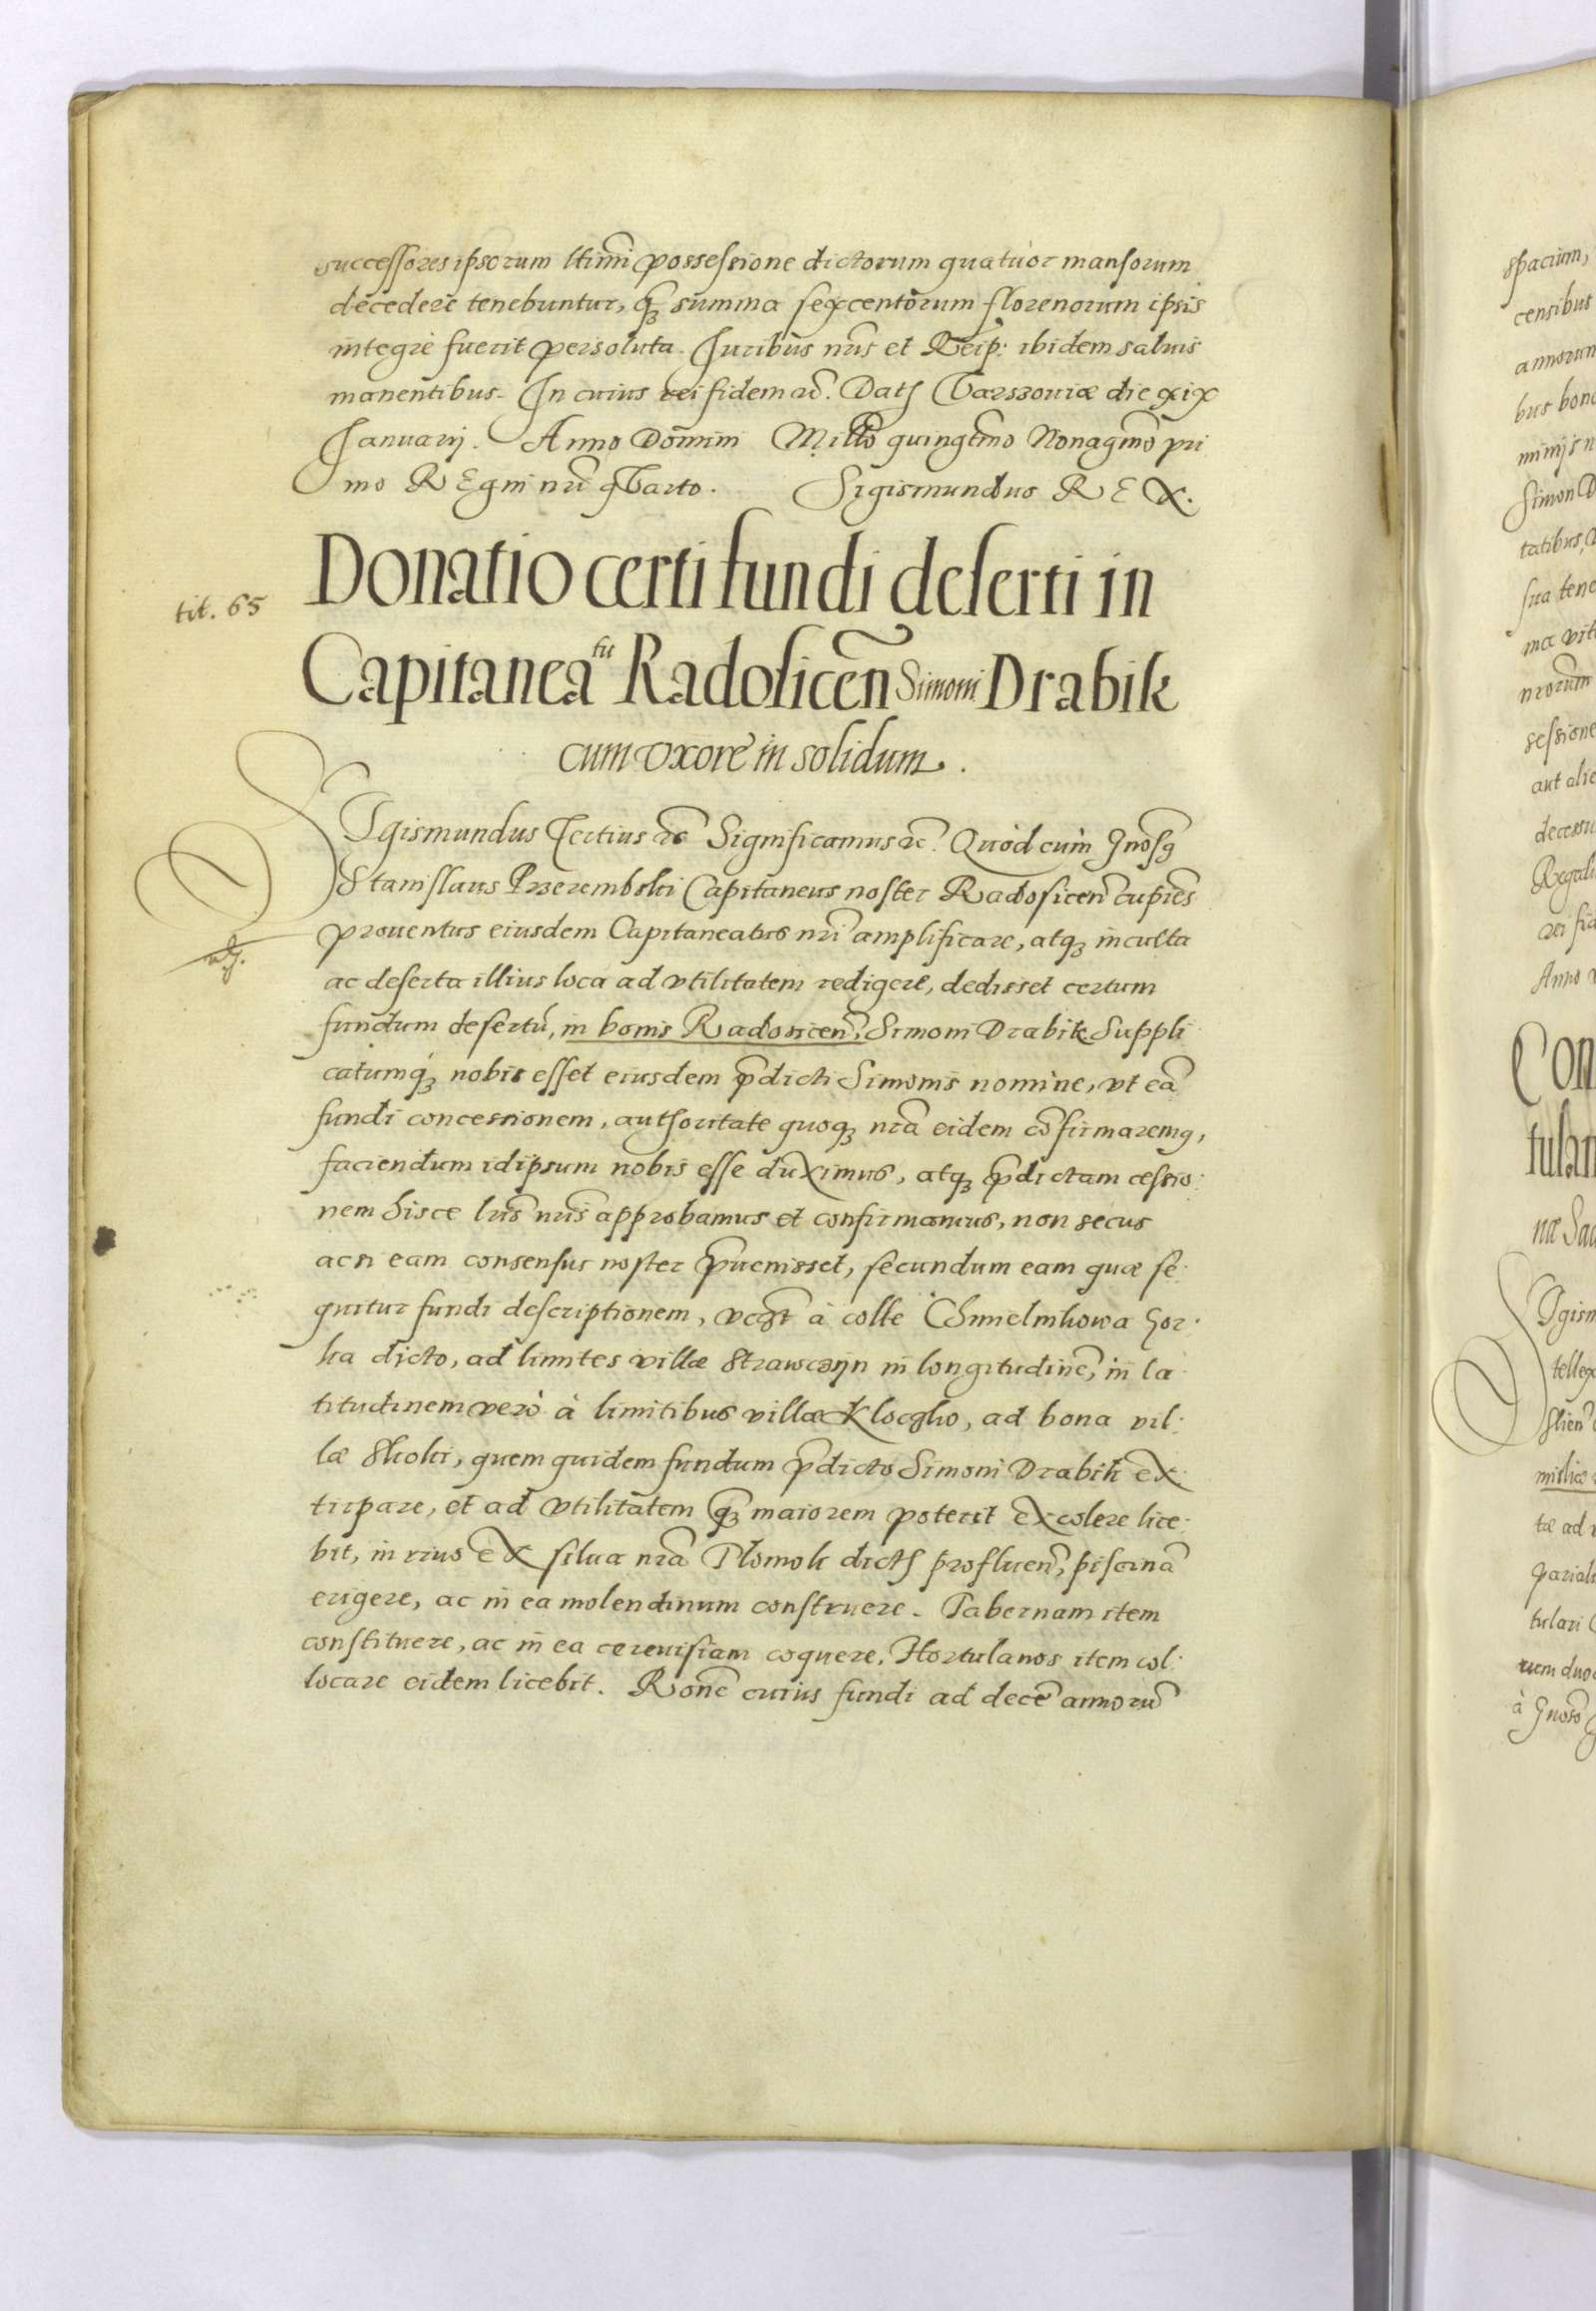 successores ipsorum ltimi possessione dictorum quatuor mansorum
decedere tenebuntur, q̃ʒ summa sexcentorum florenorum ipsis
integre fuerit persoluta. Juribus nr̃is et Reip: ibidem saluis
manentibus. In cuius rei fidem &c. Datʒ Varssouiæ die xix
Januarij. Anno Domini Millo quingtmo Nonagmo pri
mo REgni nr̃i qVarto. Sigismundus REX.
tit. 65
Donatio certi fundi deserti in
Capitaneatu Radosicen̄ Simoni Drabik
cum vxore in solidum.
SIgismundus Tertius &c Significamus &c. Quod cum Gnosꝰ
Stanislaus Przerembski Capitaneus noster Radosicen̄ cupiẽs
prouentus eiusdem Capitaneatus nr̃i amplificare, atqʒ inculta
ac deserta illius loca ad vtilitatem redigere, dedisset certum
fundum desertũ, in bonis Radosicen̄, Simoni Drabik. Suppli
catumqʒ nobis esset eiusdem p̃dicti Simonis nomine, vt eã
fundi concessionem, authoritate quoqʒ nr̃a eidem cõfirmaremꝰ,
faciendum idipsum nobis esse duXimus, atqʒ p̃dictam cessio:
nem hisce lr̃is nr̃is approbamus et confirmamus, non secus
ac si eam consensus noster p̃uenisset, secundum eam quæ se:
quitur fundi descriptionem, vcʒt à colle Chmielmkowa Gor:
ka dicto, ad limites villæ Strawczyn in longitudinẽ, in la:
titudinem verò à limitibus villæ Kloczko, ad bona vil:
læ Skolki, quem quidem fundum p̃dicto Simoni Drabik eX
tirpare, et ad vtilitatem q̃ʒ maiorem poterit eXcolere lice:
bit, in riuo eX silua nr̃a Plomok dictʒ profluen̄, piscinã
erigere, ac in ea molendinum construere. Tabernam item
constituere, ac in ea cereuisiam coquere. Hortulanos item col:
locare eidem licebit. Ronẽ cuius fundi ad decẽ annorũ